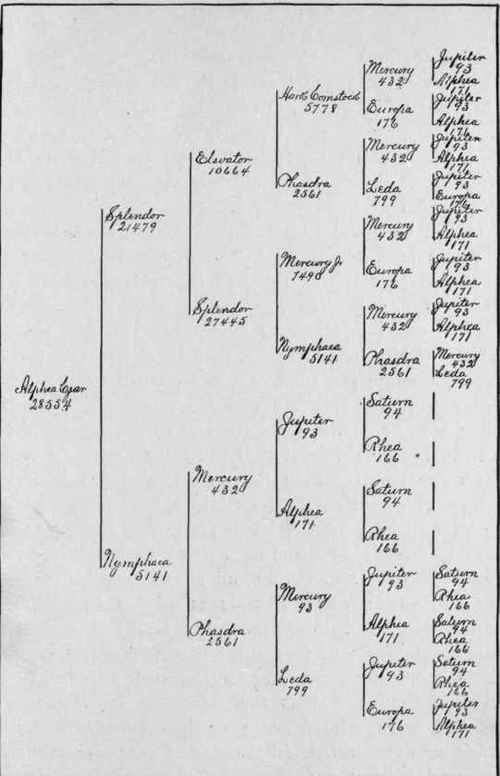 Alphea Czar
28554
Splendor
21479
Nymphaea
5141
Elevator
10664
Splendor
27445
Mercury
432
Phaedra
2561
5778
Phaedra
2561
Mercury Jr
7490
Nymphaea
5141
Jupiter
93
Alphea
171
Mercury
93
Leda
799
Mercury
432
Europa
176
Mercury
432
Leda
799
Mercury
432
Europa
176
Mercury
432
Phaedra
2561
Saturn
94
Rhea
166
Saturn
94
Rhea
166
Jupiter
93
Alphea
171
Jupiter
93
Europa
176
Jupiter
93
Alphea
171
Jupiter
93
Alphea
176
Jupiter
93
Alphea
171
Jupiter
93
Europa
176
Jupiter
93
Alphea
171
Jupiter
93
Alphea
171
Jupiter
93
Alphea
171
Mercury
432
Leda
799
Saturn
94
Rhea
166
Saturn
94
Rhea
166
Saturn
94
Rhea
166
Jupiter
93
Alphea
171